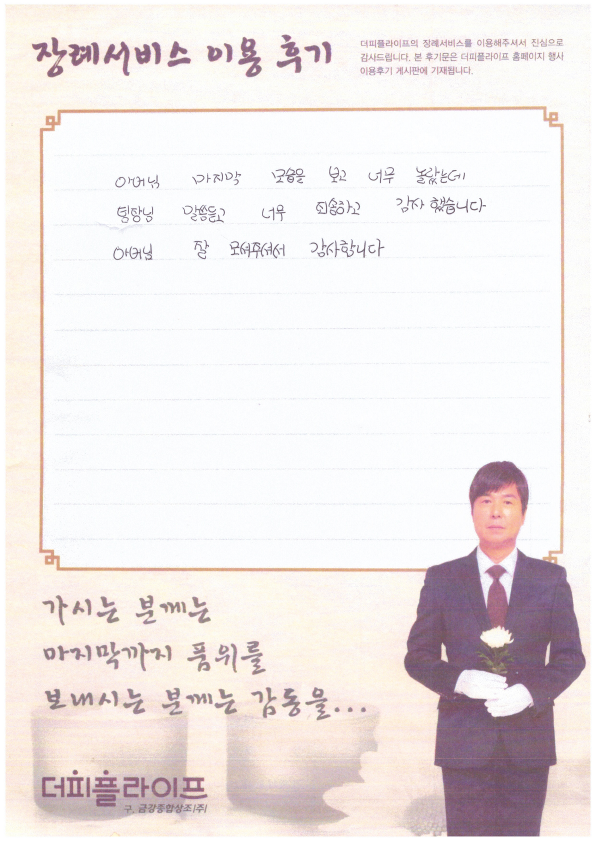 장례서비스 이용 후기
더피플라이프의 장례서비스를 이용해주셔서 진심으로
감사드립니다. 본 후기문은 더피플라이프 홈페이지 행사
이용후기 게시판에 기재됩니다.
아머님 마지막 모습을 보고 너무 놀랐는데
팀장님 말씀듣고 너무 죄송하고 감사 했습니다
아머님 잘 모셔주셔서 감사합니다
가시는 분께는
마지막까지 품위를
보내시는 분께는 감동을...
더피플라이프
구. 금강종합상조(주)